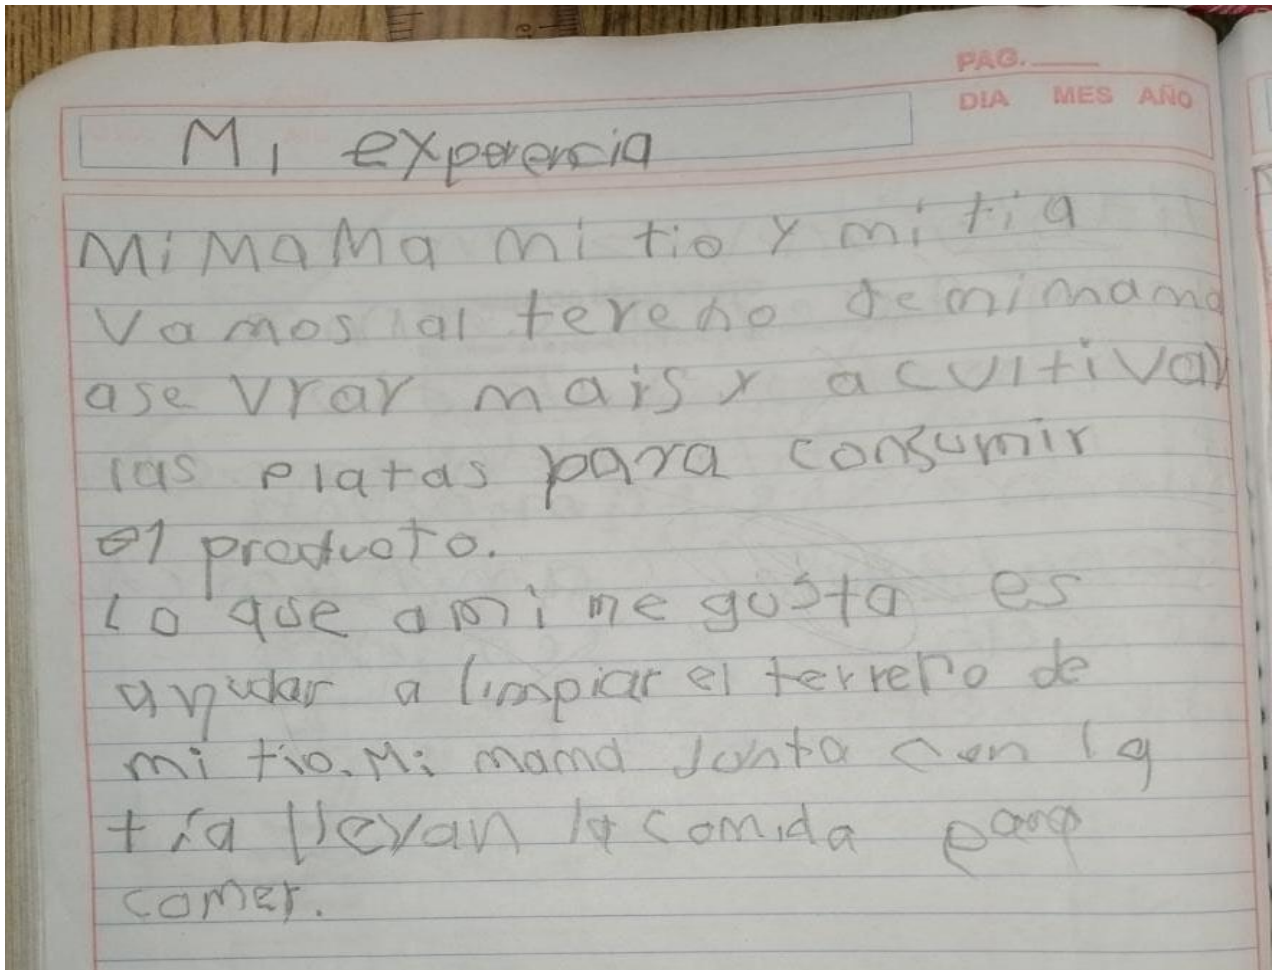 PAG.
DIA MES AÑO
Mi experencia
Mi MaMa mi tio y mi tia
Vamos al tereno de mi mama
ase vrar mais y a cultivar
las platas para consumir
el producto.
Lo que a mi me gusta es
ayudar a limpiar el terreno de
mi tio. Mi mama Junta con la
tía llevan la comida para
comer.